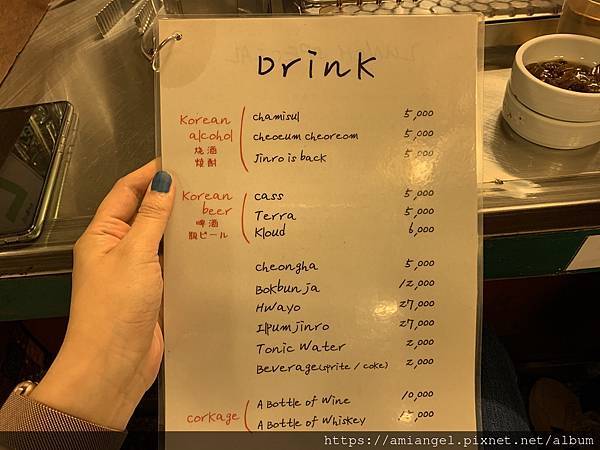 Drink
Korean alcohol 烧酒 焼酎
chamisul 5,000
cheoeum cheoreom 5,000
Jinro is back 5,000
Korean beer 啤酒 瓶ビール
cass 5,000
Terra 5,000
Kloud 6,000
cheongha 5,000
Bokbunja 12,000
Hwayo 27,000
Ilpumjinro 27,000
Tonic Water 2,000
Beverage(sprite / coke) 2,000
corkage
A Bottle of Wine 10,000
A Bottle of Whiskey 15,000
https://amiangel.pixnet.net/album